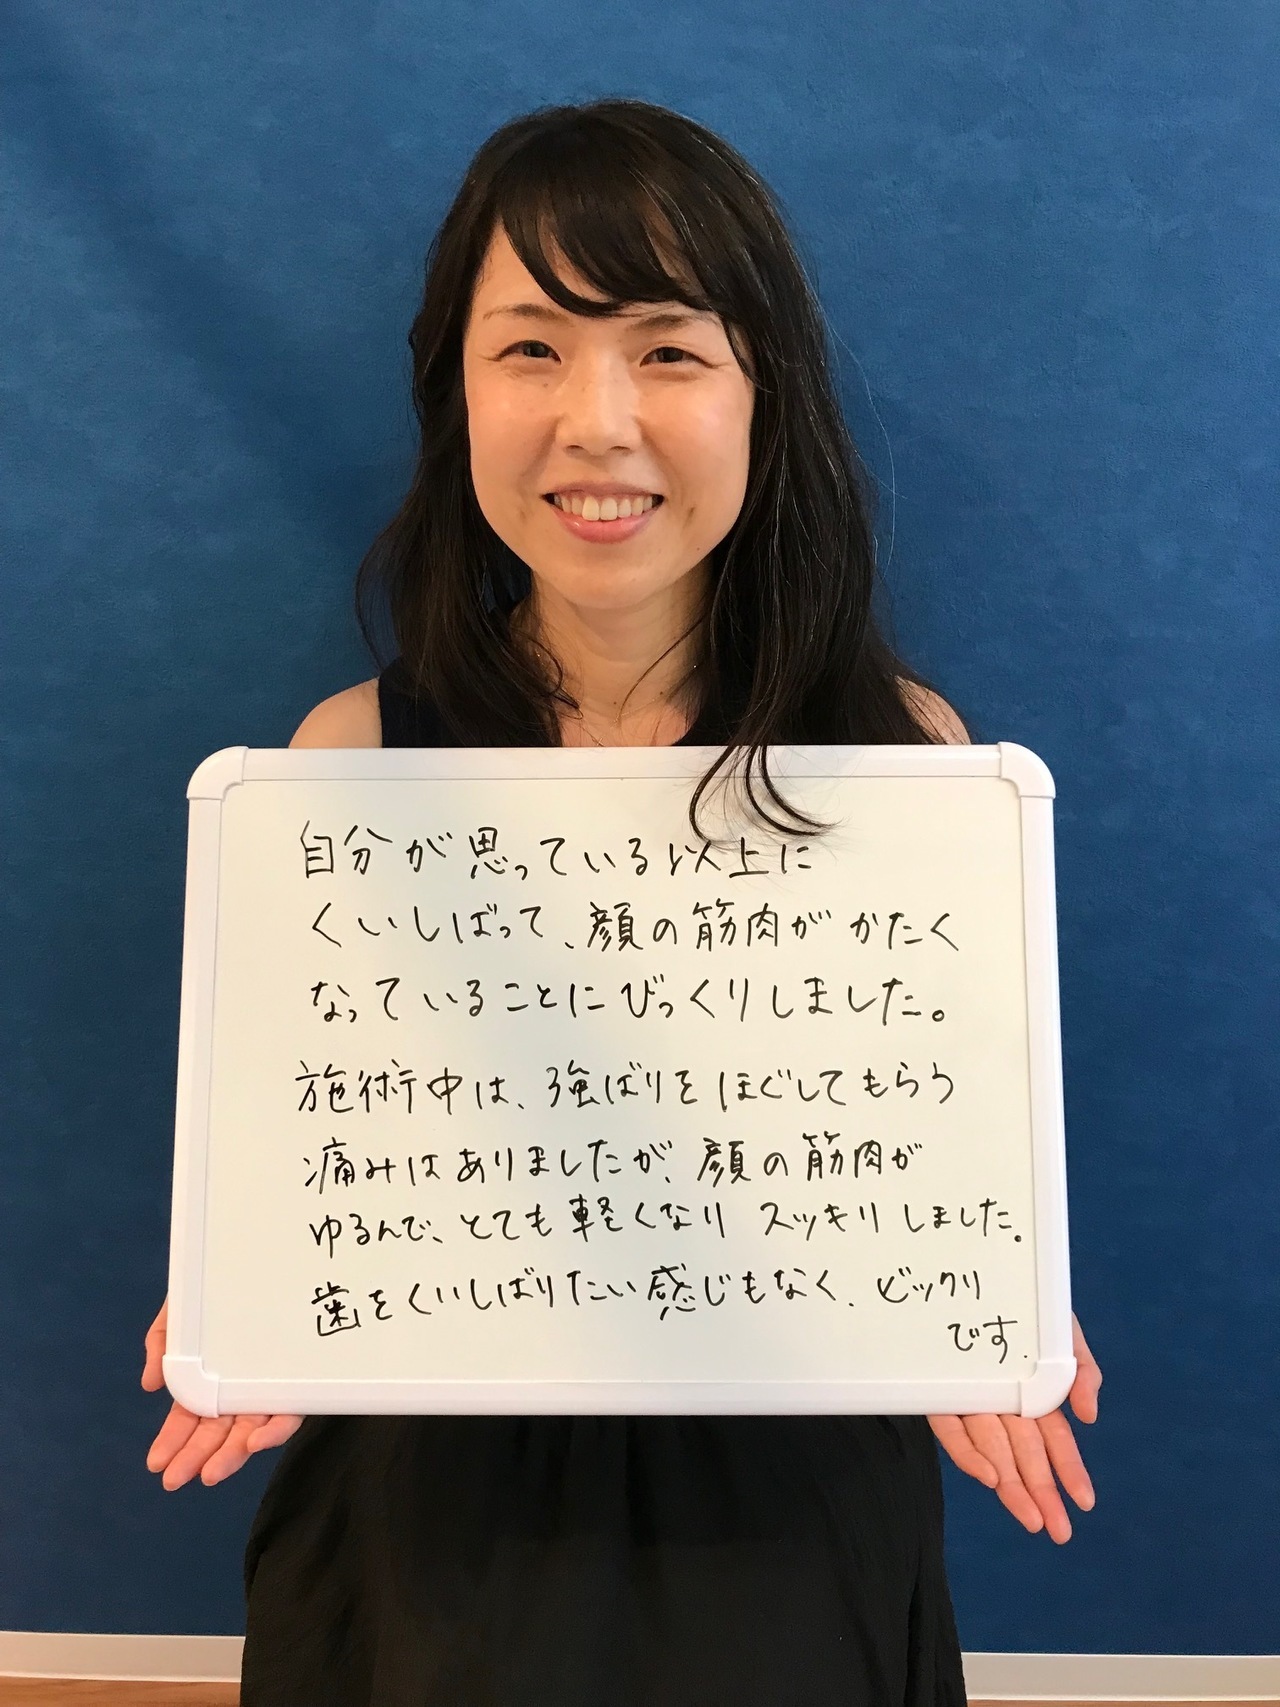 自分が思っている以上に
くいしばって、顔の筋肉がかたく
なっていることにびっくりしました。
施術中は、強ばりをほぐしてもらう
痛みはありましたが、顔の筋肉が
ゆるんで、とても軽くなりスッキリしました。
歯をくいしばりたい感じもなく、ビックリ
です.